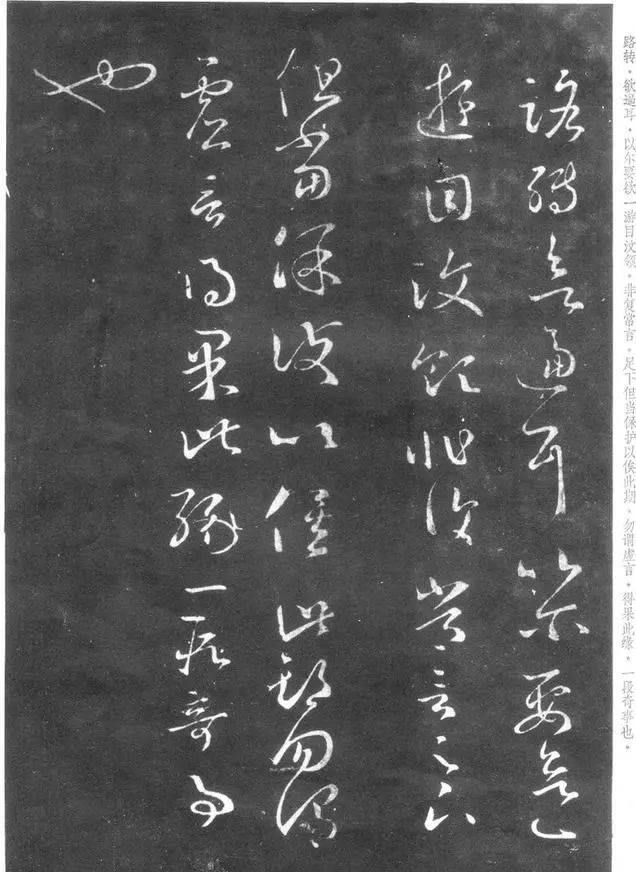 路转。欲逼耳。以尔要欲一游目汶领。非复常言。足下但当保护以俟此期。勿谓虚言。得果此缘。一段奇事也。
路轉欲逼耳以爾要欲一
遊目汶領非復常言足下
但當保護以俟此期勿謂
虛言得果此緣一段奇事
也